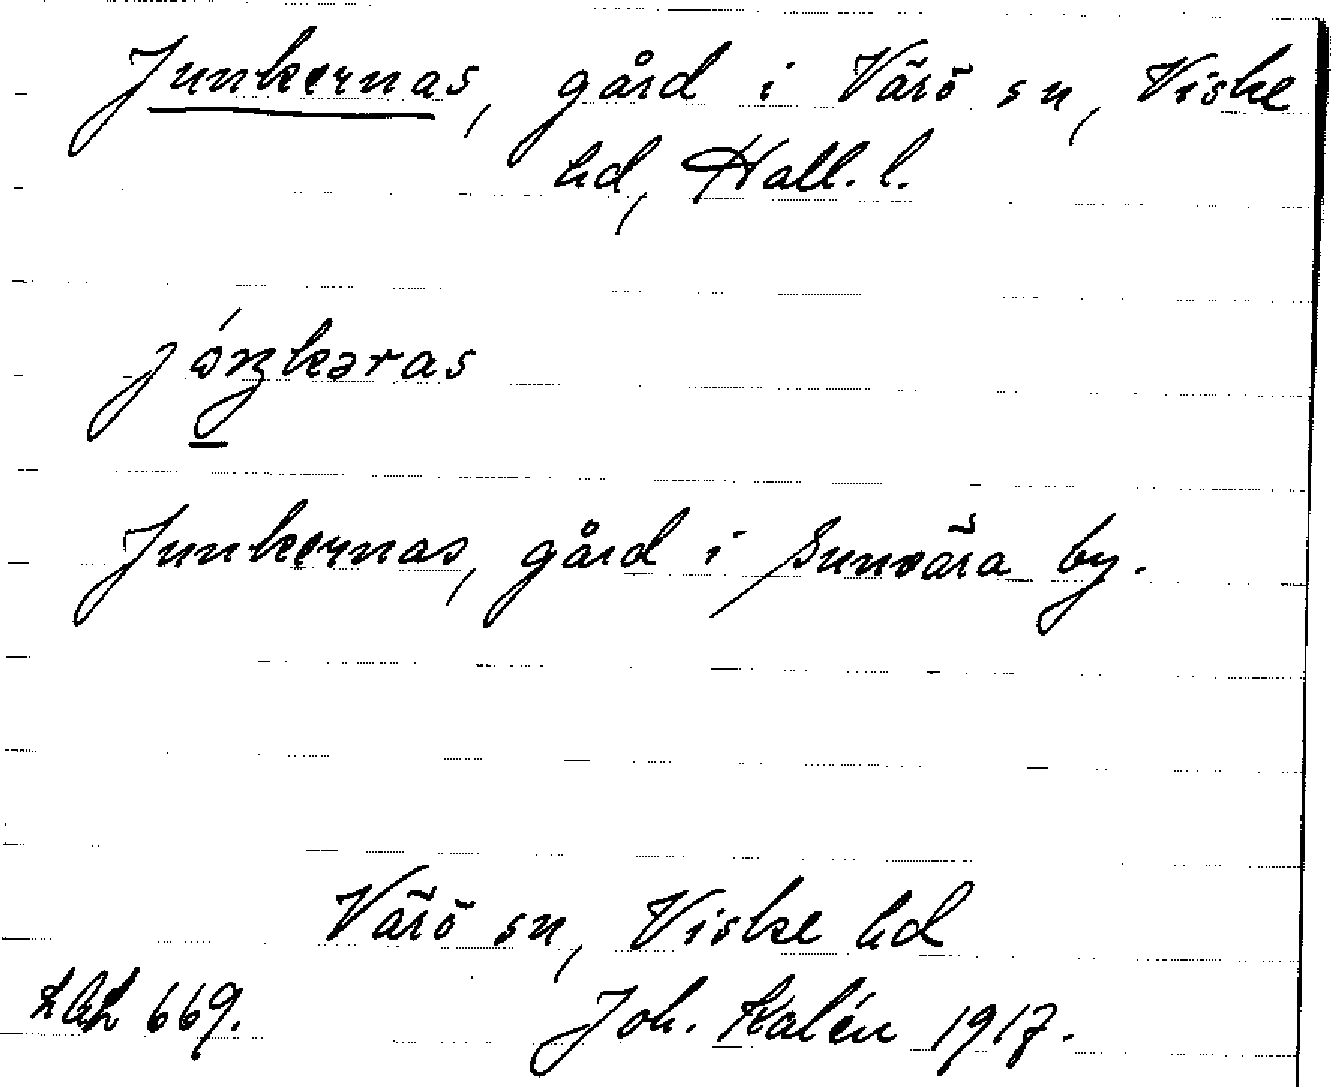 Junkernas, gård i Värö sn, Viske
hd, Hall. l.
Junkernas, gård i Sunvära by.
Värö sn, Viske hd
669. Joh. Kalén 1917.